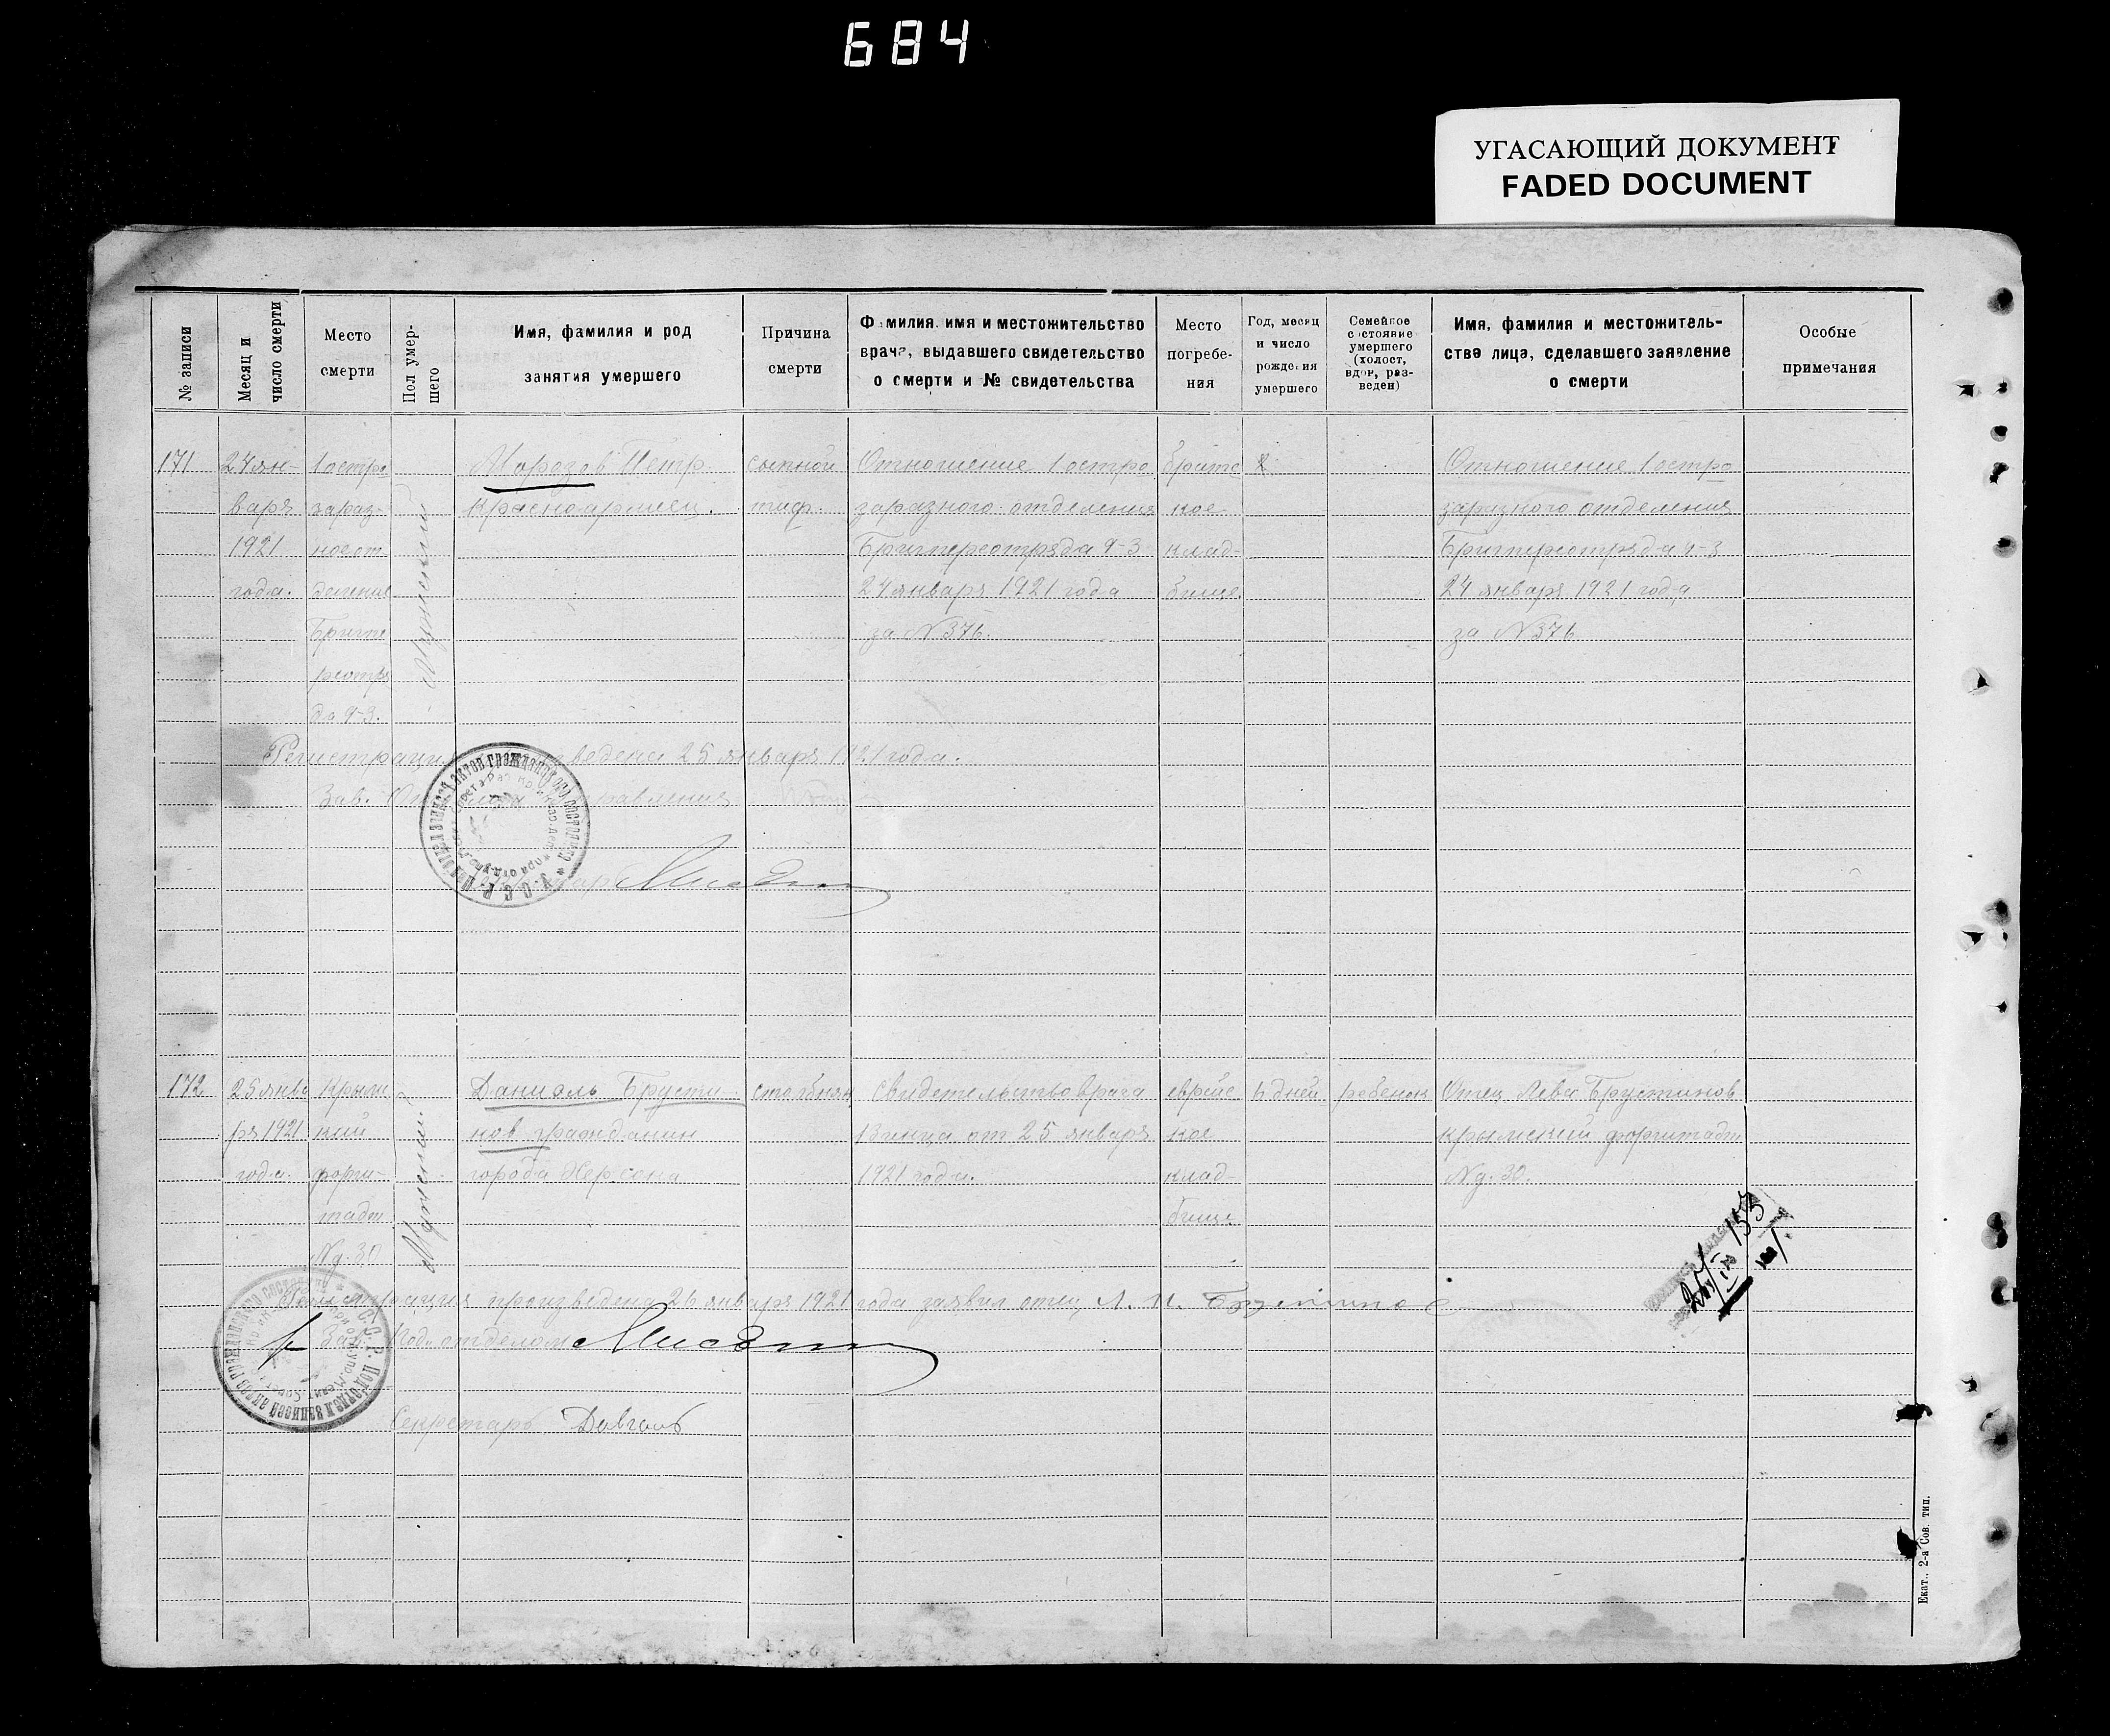 684
УГАСАЮЩИЙ ДОКУМЕНТ
FADED DOCUMENT
№ записи
Месяц и
число смерти
Место
смерти
Пол умер-
шего
Имя, фамилия и род
занятия умершего
Причина
смерти
Фамилия, имя и местожительство
врача, выдавшего свидетельство
о смерти и № свидетельства
Место
погребе-
ния
Год, месяц
и число
рождения
умершего
Семейное
состояние
умершего
(холост,
вдов, раз-
веден)
Имя, фамилия и местожитель-
ство лица, сделавшего заявление
о смерти
Особые
примечания
171
24 ян-
варя
1921
года.
1 остро
зараз-
ное от
деление
реотря
да 4-3.
Мужской
Морозов Петр.
Красноармеец.
сыпной
тиф.
Отношение 1 остро
заразного отделения
24 января 1921 года
за № 376.
братс
кое
клад-
бище
Отношение 1 остро
заразного отделения
24 января 1921 года
за № 376
Регистрация 25 января 1921 года.
Зав.
172
25 янва
ря 1921
года.
Крымс
кий
форш-
тадт
№ д. 30
Мужской.
Даниэль Брусти
нов гражданин
города Херсона
столбняк
Свидетельство врача
от 25 января
1921 года.
еврейс
кое
клад-
бище
дней
ребенок
Отец Лева Брустинов
Крымский форштадт
№ д. 30.
Регистрация произведена 26 января 1921 года заявил отец Л. И. Брустинов
Зав. Под. отделом
Секретарь Довгаль
Екат., 2-я Сов. тип.